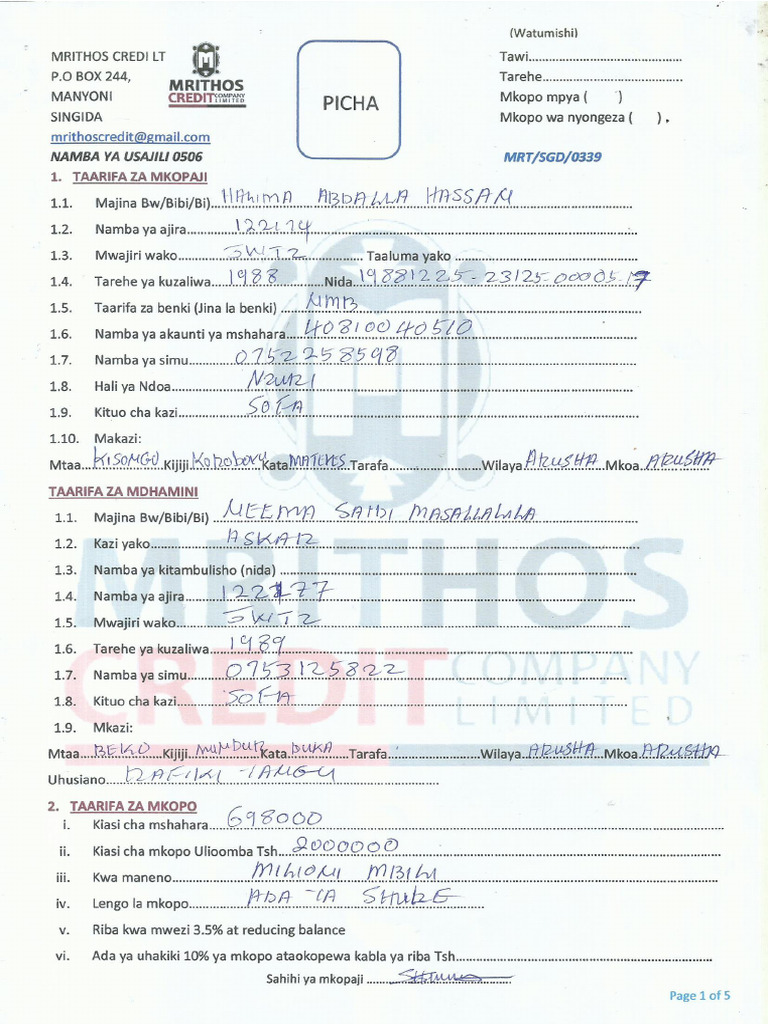 (Watumishi)
MRITHOS CREDI LT
P.O BOX 244,
MANYONI
SINGIDA
mrithoscredit@gmail.com
NAMBA YA USAJILI 0506
MRITHOS
CREDIT COMPANY LIMITED
PICHA
Tawi
Tarehe
Mkopo mpya ( )
Mkopo wa nyongeza ( ) .
MRT/SGD/0339
1. TAARIFA ZA MKOPAJI
1.1. Majina Bw/Bibi/Bi) HALIMA ABDALLA HASSAN
1.2. Namba ya ajira 122114
1.3. Mwajiri wako JWTZ Taaluma yako
1.4. Tarehe ya kuzaliwa 1988 Nida 19881225-23125-00005-17
1.5. Taarifa za benki (Jina la benki) NMB
1.6. Namba ya akaunti ya mshahara 40810040510
1.7. Namba ya simu 0752258598
1.8. Hali ya Ndoa NZURI
1.9. Kituo cha kazi SOFA
1.10. Makazi:
Mtaa KISONGO Kijiji Kata MATEVES Tarafa Wilaya ARUSHA Mkoa ARUSHA
TAARIFA ZA MDHAMINI
1.1. Majina Bw/Bibi/Bi) NEEMA SAIDI
1.2. Kazi yako ASKARI
1.3. Namba ya kitambulisho (nida)
1.4. Namba ya ajira 122177
1.5. Mwajiri wako JWTZ
1.6. Tarehe ya kuzaliwa 1989
1.7. Namba ya simu 0753125822
1.8. Kituo cha kazi SOFA
1.9. Mkazi:
Mtaa BEKO Kijiji Kata DUKA Tarafa Wilaya ARUSHA Mkoa ARUSHA
Uhusiano RAFIKI YANGU
2. TAARIFA ZA MKOPO
i. Kiasi cha mshahara 698000
ii. Kiasi cha mkopo Ulioomba Tsh 2000000
iii. Kwa maneno MILIONI MBILI
iv. Lengo la mkopo ADA YA SHULE
v. Riba kwa mwezi 3.5% at reducing balance
vi. Ada ya uhakiki 10% ya mkopo ataokopewa kabla ya riba Tsh
Sahihi ya mkopaji
MRITHOS
CREDIT COMPANY LIMITED
Page 1 of 5